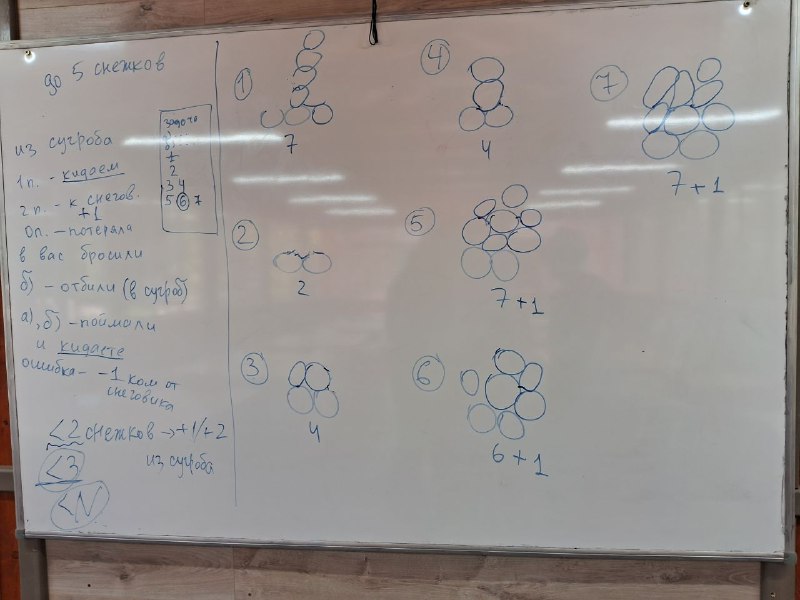 до 5 снежков
из сугроба
1п. - кидаем
2п. - к снегов.
+1
0п. - потеряла
в вас бросили
б) - отбили (в сугроб)
а), б) - поймали
и кидаете
ошибка - -1 ком от
снеговика
<2 снежков → +1/+2
<3 из сугроба
<N
задача
а)
б)
1
2
3 4
5 6 7
1
7
2
2
3
4
4
4
5
7+1
6
6+1
7
7+1